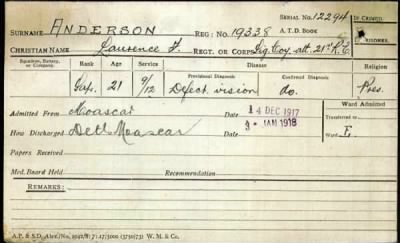 SERIAL No. 12294 IF CRIMED.
SURNAME ANDERSON REG: No. 19338 A.T.D. BOOK
CHRISTIAN NAME Laurence F. REGT. OR CORPS Sig. Coy. att. 21st R.E.
Squadron, Battery, or Company. Rank Age Service Provisional Diagnosis Disease Confirmed Diagnosis Religion
Sap. 21 9/12 Defect. vision do. Pres.
Admitted From Moascar Date 14 DEC 1917 Ward Admitted
Transferred to
How Discharged Detl Moascar Date JAN 1918 Ward E.
Papers Received
Med. Board Held Recommendation
REMARKS:
A.P. & S.D. Alex./No. 2042/8:7:17/5000 (3750/73) W. M. & Co.